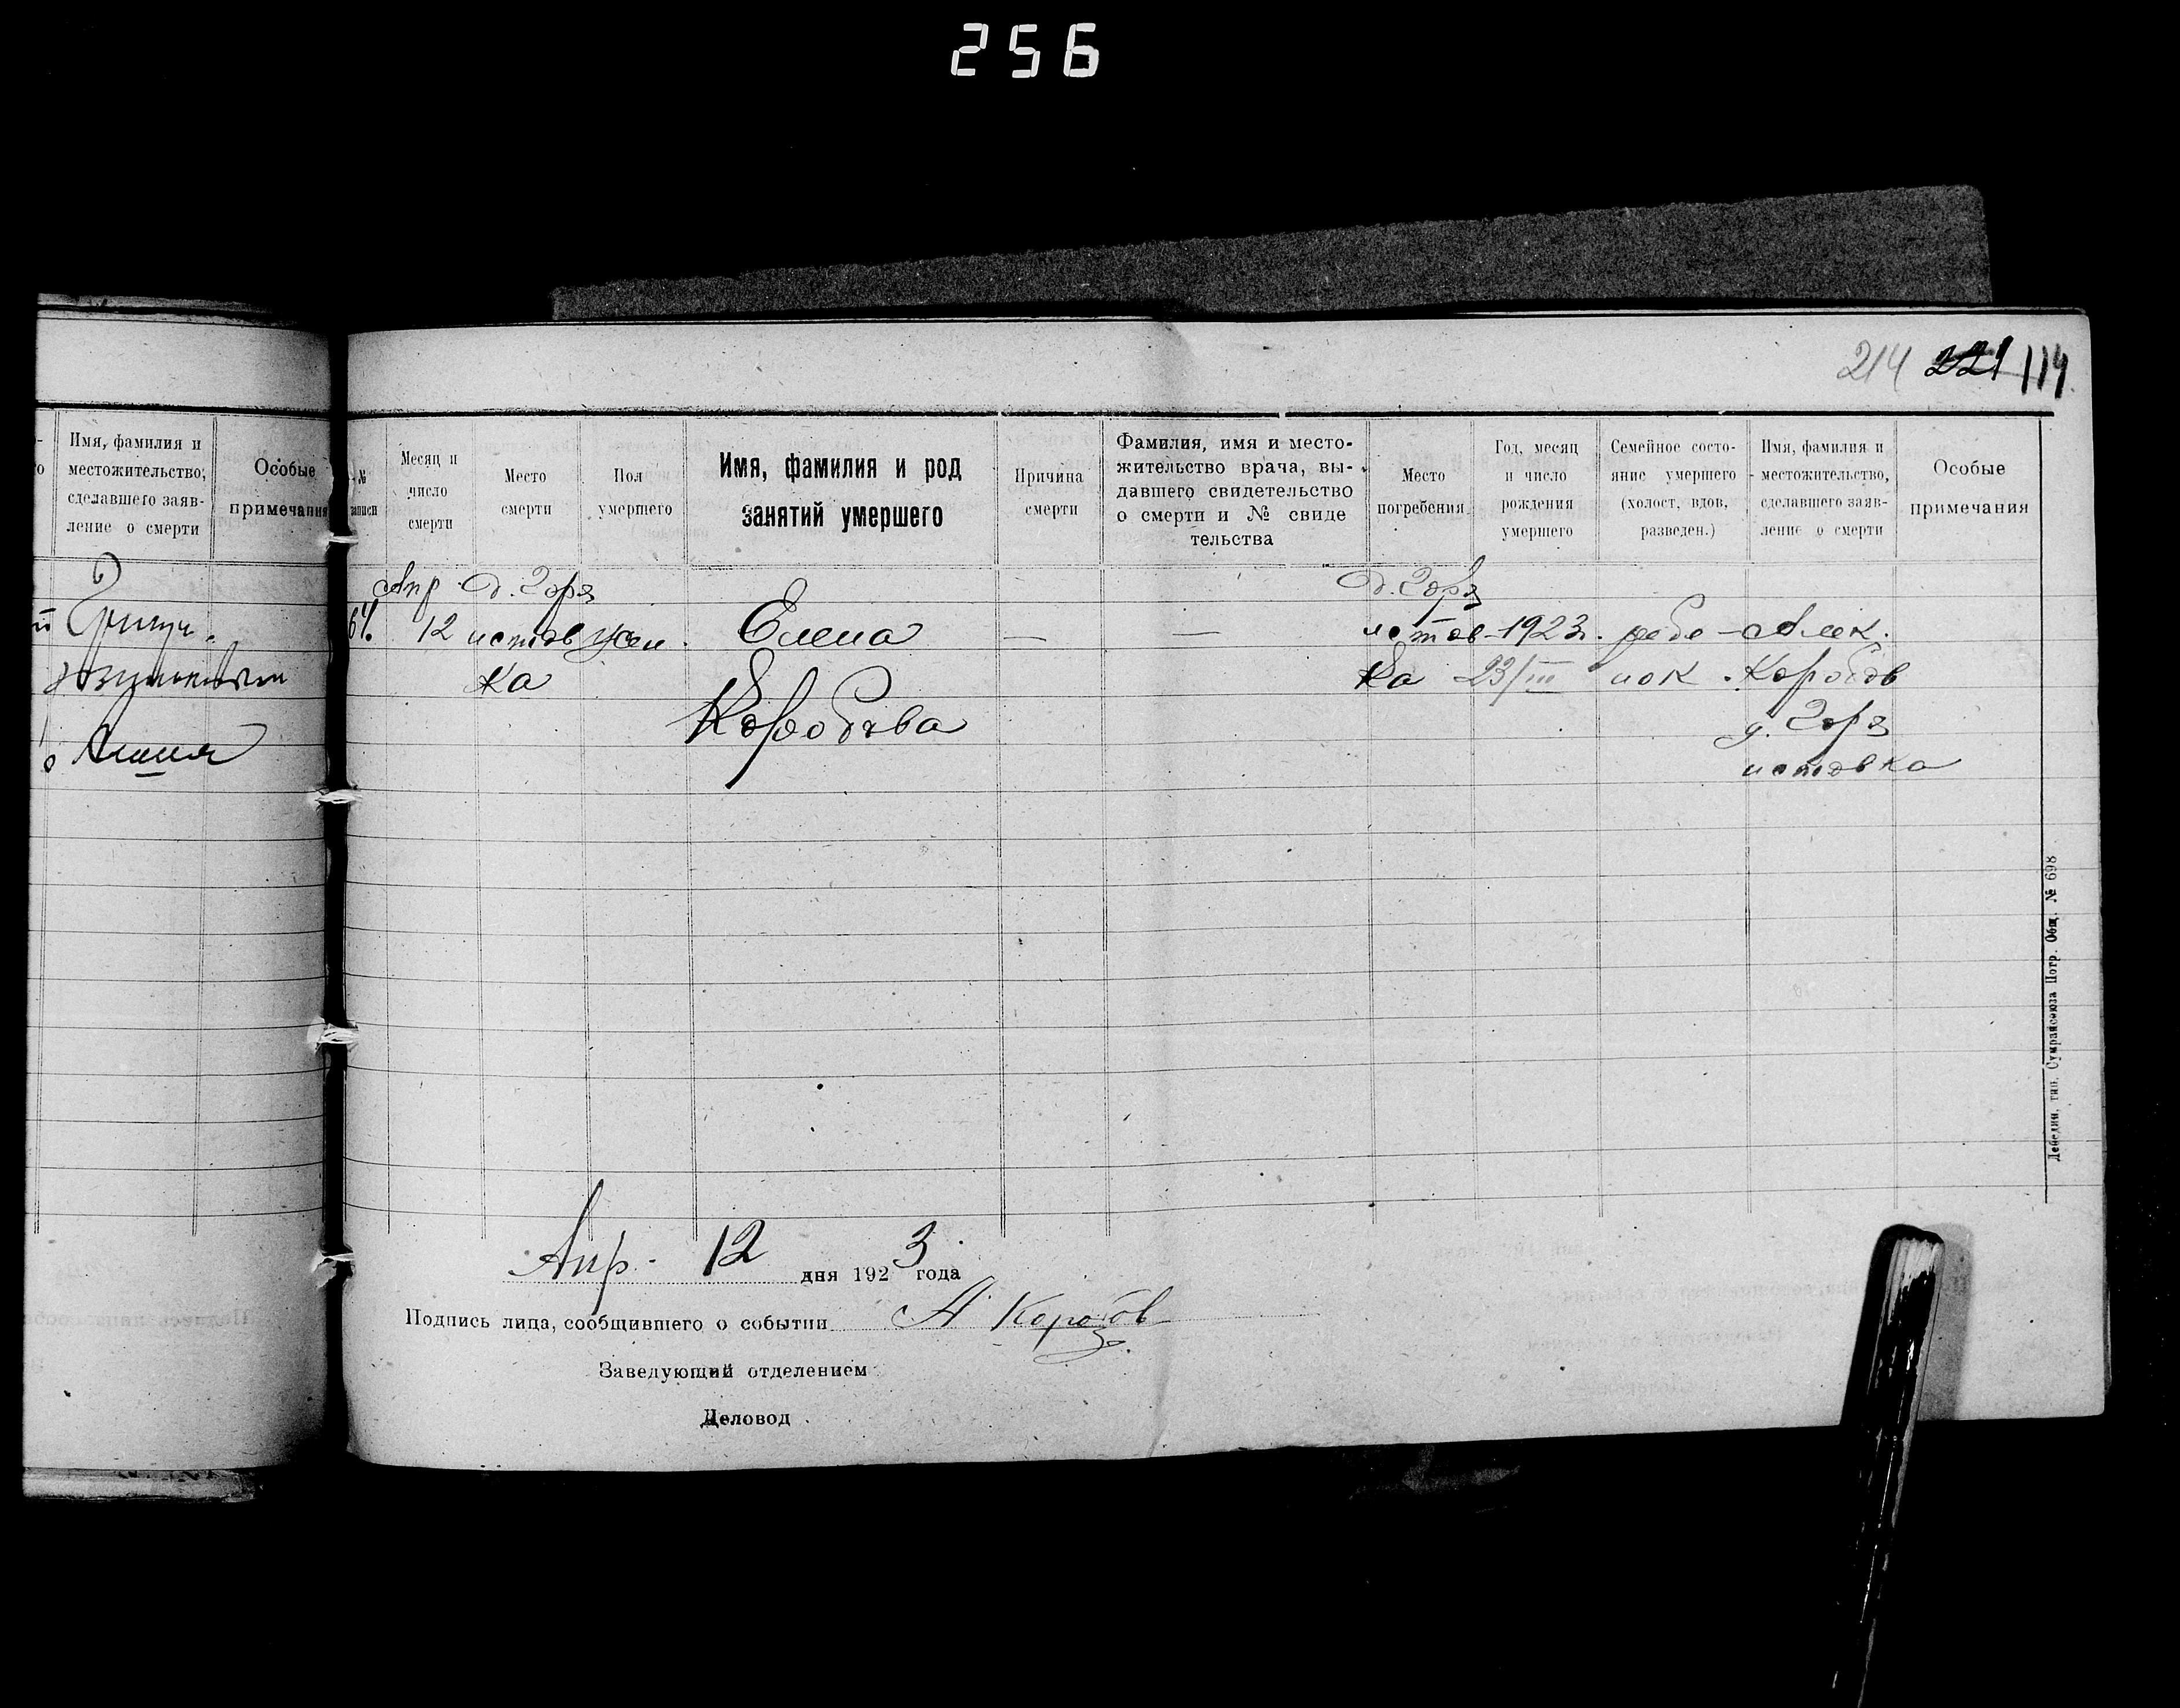 256
214 221 114
Имя, фамилия и
местожительство,
сделавшего заяв-
ление о смерти
Особые
примечания
№
записи
Месяц и
число
смерти
Место
смерти
Пол
умершего
Имя, фамилия и род
занятий умершего
Причина
смерти
Фамилия, имя и место-
жительство врача, вы-
давшего свидетельство
о смерти и № свиде
тельства
Место
погребения
Год, месяц
и число
рождения
умершего
Семейное состо-
яние умершего
(холост, вдов,
разведен.)
Имя, фамилия и
местожительство,
сделавшего заяв-
ление о смерти
Особые
примечания
Апр. д. Горя д. Горя
12 истов жен. Елена — — истов- 1923г. ребе- Алек.
ка ка 23/III нок. Коробов
Коробова д. Горя
истовка
Апр. 12 дня 1923 года
Подпись лица, сообщившего о событии А Коробов
Заведующий отделением
Деловод
Лебедин, тип. Сумрайсоюза Потр. Общ. № 698